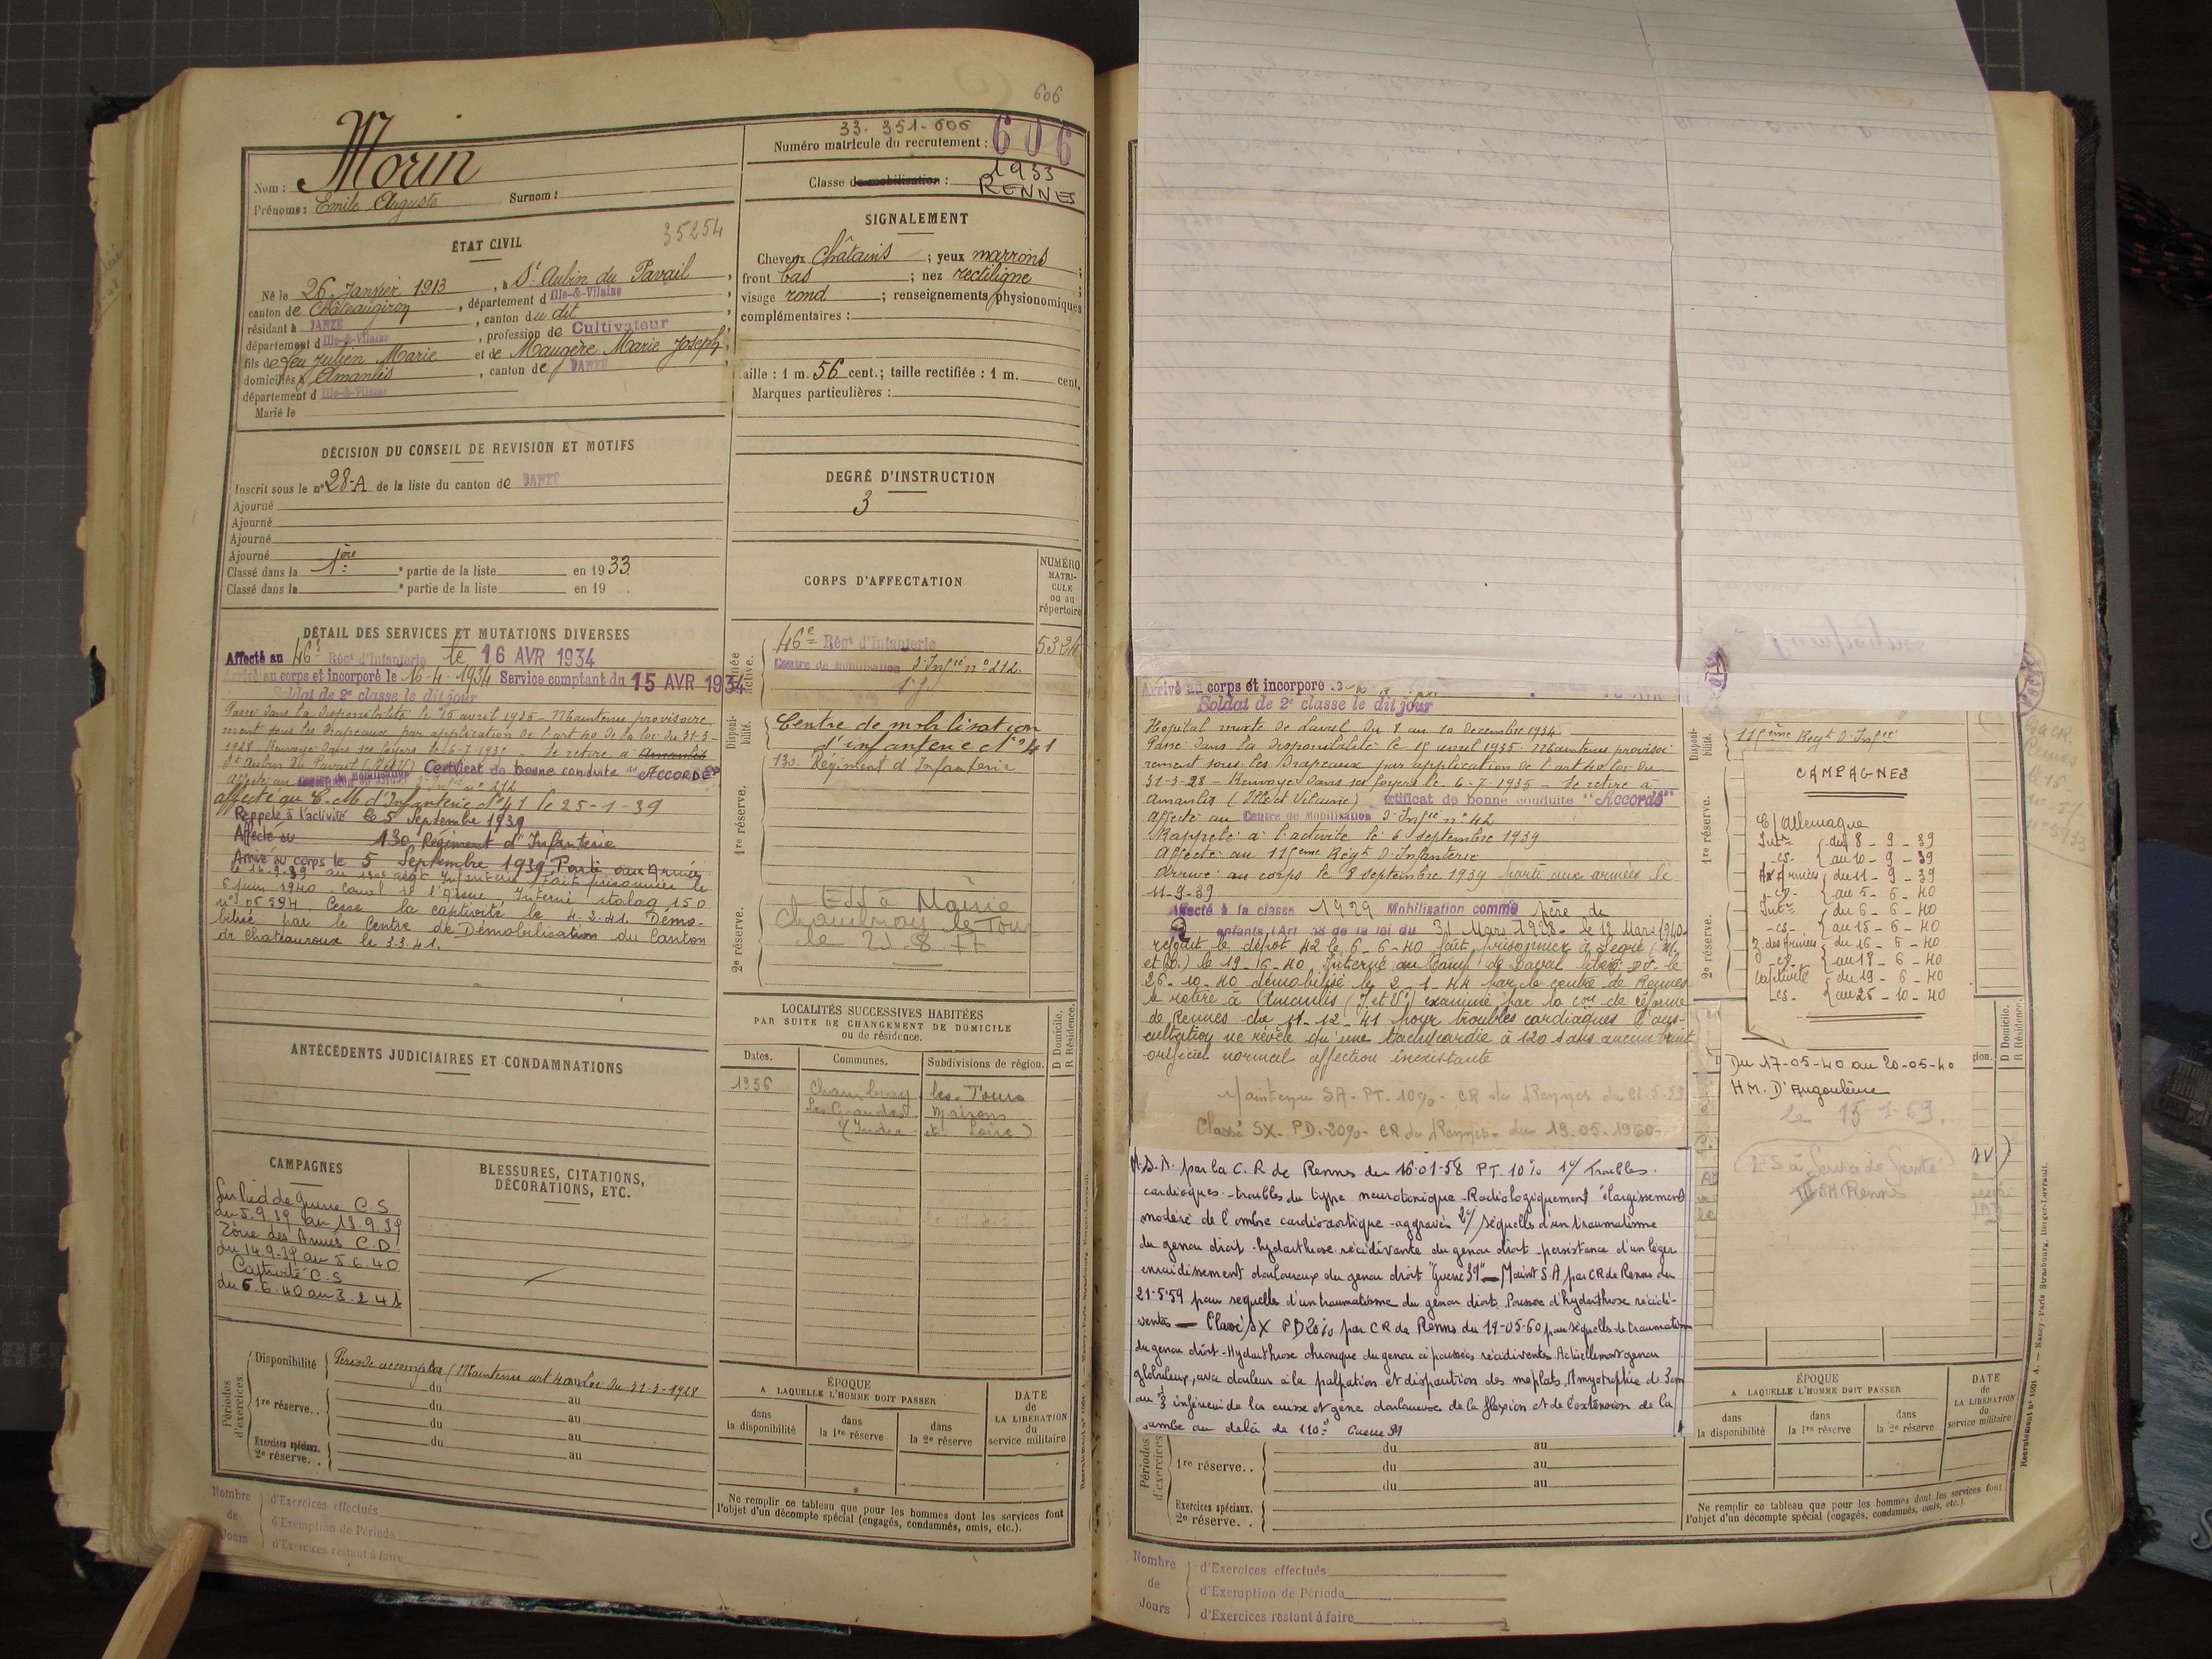 606
33. 351-606
Numéro matricule du recrutement : 606
Nom : Morin
Prénoms : Emile Auguste Surnom :
Classe de mobilisation : 1933
RENNES
ÉTAT CIVIL
35254
Né le 26 Janvier 1913, à St Aubin du Pavail,
canton de Châteaugiron, département d Ille-&-Vilaine,
résidant à JANZÉ, canton du dit,
département d Ille-&-Vilaine, profession de Cultivateur
fils de feu Julien Marie et de Maugère Marie Joseph,
domiciliés à Amanlis, canton de JANZÉ,
département d Ille-&-Vilaine
Marié le
SIGNALEMENT
Cheveux Châtains ; yeux marrons ;
front bas ; nez rectiligne ;
visage rond ; renseignements physionomiques
complémentaires :
taille : 1 m. 56 cent. ; taille rectifiée : 1 m. cent.
Marques particulières :
DÉCISION DU CONSEIL DE REVISION ET MOTIFS
Inscrit sous le n° 28-A de la liste du canton de JANZÉ
Ajourné
Ajourné
Ajourné
Ajourné
Classé dans la 1ère partie de la liste en 1933
Classé dans la partie de la liste en 19 .
DEGRÉ D'INSTRUCTION
3
DÉTAIL DES SERVICES ET MUTATIONS DIVERSES
Affecté au 46e Régt d'Infanterie le 16 AVR 1934
Arrivé au corps et incorporé le 16-4-1934 Service comptant du 15 AVR 1934
Soldat de 2e classe le dit jour
Passé dans la disponibilité le 15 avril 1935 - Maintenu provisoire
ment sous les drapeaux par application de l'art 40 de la loi du 31-3-
1928 - Renvoyé dans ses foyers le 6-7-1935 - Se retire à Amanlis
St Aubin du Pavail (I&V) Certificat de bonne conduite "ACCORDÉ"
Affecté au Centre de Mobilisation d'Infie n° 212
affecté au C.M d'Infanterie N°41 le 25-1-39
Rappelé à l'activité le 5 Septembre 1939
Affecté au 130 Régiment d'Infanterie
Arrivé au corps le 5 Septembre 1939 Parti aux Armées
le 14-9-39 au 130e Regt Infanterie Fait prisonnier le
6 juin 1940 canal de l'Aisne, Interné stalag 150
n° 05594. Cesse la captivité le 4.2.41. Démo-
bilisé par le Centre de Démobilisation du Canton
de Chateauroux le 3.3.41.
CORPS D'AFFECTATION
NUMÉRO
MATRI-
CULE
ou au
répertoire
année active.
46e Régt d'Infanterie 5324
Centre de Mobilisation d'Infie n° 212.
Disponi-
bilité.
Centre de mobilisation
d'infanterie N° 41
130. Régiment d'Infanterie
1re réserve.
2e réserve.
Mairie
Chambray les Tours
ANTÉCÉDENTS JUDICIAIRES ET CONDAMNATIONS
LOCALITÉS SUCCESSIVES HABITÉES
PAR SUITE DE CHANGEMENT DE DOMICILE
ou de résidence.
D Domicile.
R Résidence.
Dates. Communes. Subdivisions de région.
1956 Chambray les Tours
Les Grandes Maisons
(Indre et Loire)
CAMPAGNES
Sur Pied de Guerre C.S
du 5.9.39 au 13.9.39
Zône des Armées C.D.
du 14.9.39 au 5.6.40
Captivité C.S
du 6.6.40 au 3.2.41
BLESSURES, CITATIONS,
DÉCORATIONS, ETC.
Périodes
d'exercices
Disponibilité Période accomplie (Maintenu art 40 loi du 31-3-1928
du au
1re réserve. . du au
du au
Exercices spéciaux. du au
2e réserve. .
ÉPOQUE
A LAQUELLE L'HOMME DOIT PASSER
dans
la disponibilité
dans
la 1re réserve
dans
la 2e réserve
DATE
de
LA LIBÉRATION
du
service militaire
Ne remplir ce tableau que pour les hommes dont les services font
l'objet d'un décompte spécial (engagés, condamnés, omis, etc.).
Nombre
de
Jours
d'Exercices effectués
d'Exemption de Période
d'Exercices restant à faire
Campagnes
Arrivé au corps et incorporé
Soldat de 2e classe le dit jour
Hopital mixte de Laval du 8 au 10 Decembre 1934
Passé dans la disponibilité le 15 avril 1935 Maintenu provisoi
rement sous les Drapeaux par application de l'art 40 loi du
31-3-28 - Renvoyé dans ses foyers le 6-7-1935 - Se retire à
Amanlis (Ille et Vilaine) certificat de bonne conduite "Accordé"
Affecté au Centre de Mobilisation d'Infie n° 42
Rappelé à l'activité le 6 septembre 1939
Affecté au 115ème Régt d'Infanterie
Arrivé au corps le 8 septembre 1939 parti aux armées le
11-9-39
Affecté à la classe 1929 Mobilisation comme père de
2 enfants (Art 58 de la loi du 31 Mars 1928 - Le 12 Mars 1940
rejoint le dépot 42 le 6-6-40 fait prisonnier à Segré (M.
et L.) le 19-16-40 Interné au Camp de Laval libéré le
26-10-40 démobilisé le 2-1-44 par le centre de Rennes
se retire à Amanlis (I et V) examiné par la Con de réforme
de Rennes du 11-12-41 pour troubles cardiaques l'aus-
cultation ne révèle qu'une tachycardie à 120 sans aucun bruit
orificiel normal affection inexistante
Maintenu SA - PT. 10% - CR de Rennes du 21-5-59
Classé SX - PD. 20% - CR de Rennes - du 19.05.1960 -
M.S.A. par la C.R de Rennes du 16.01.58 PT. 10% 1°/ Troubles.
cardiaques - troubles du type neurotonique - Radiologiquement élargissement
modéré de l'ombre cardioaortique - aggravés 2°/ séquelles d'un traumatisme
du genou droit - hydarthrose récidivante du genou droit - persistance d'un léger
enraidissement douloureux du genou droit "Guerre 39" — Maint S.A par CR de Rennes du
21-5-59 pour sequelles d'un traumatisme du genou droit. Poussée d'hydarthrose récidi-
vantes — Classé SX PD 20% par CR de Rennes du 19-05-60 pour séquelles de traumatisme
du genou droit - Hydarthrose chronique du genou à poussées récidivantes. Actuellement genou
globuleux, avec douleur à la palpation et disparition des méplats. Amyotrophie de 3cm
au 1/3 inférieur de la cuisse et gêne douloureuse de la flexion et de l'extension de la
jambe au delà de 110° Guerre 39
Disponi-
bilité.
1re réserve.
2e réserve.
115ème Regt d'Infie
CAMPAGNES
C/ Allemagne
Intre du 8 - 9 - 39
-cs- au 10 - 9 - 39
Ax Armées du 11 - 9 - 39
-cd- au 5 - 6 - 40
Intre du 6 - 6 - 40
-cs- au 15 - 6 - 40
Z. des Armées du 16 - 6 - 40
-cd- au 18 - 6 - 40
Captivité du 19 - 6 - 40
-cs- au 25 - 10 - 40
Du 17-05-40 au 20-05-40
H.M. D'Angoulême
le 15 1-63.
Service de Santé
III RM Rennes
D Domicile.
R Résidence.
Périodes
d'exercices
du au
1re réserve. . du au
du au
Exercices spéciaux.
2e réserve. .
ÉPOQUE
A LAQUELLE L'HOMME DOIT PASSER
dans
la disponibilité
dans
la 1re réserve
dans
la 2e réserve
DATE
de
LA LIBÉRATION
du
service militaire
Ne remplir ce tableau que pour les hommes dont les services font
l'objet d'un décompte spécial (engagés, condamnés, omis, etc.).
Nombre
de
Jours
d'Exercices effectués
d'Exemption de Période
d'Exercices restant à faire